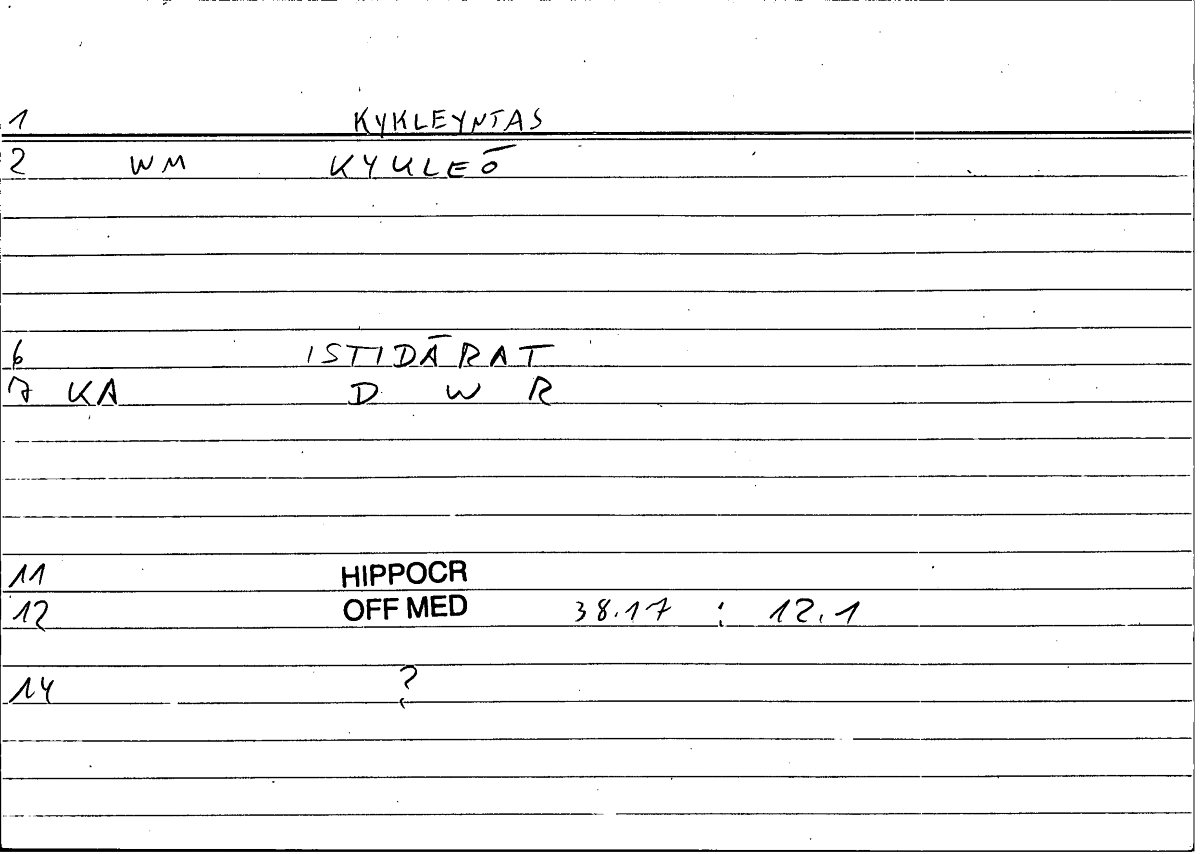 1 KYKLEYNTAS
2 WM KYKLEŌ
6 ISTIDĀRAT
7 KA D W R
11 HIPPOCR
12 OFF MED 38.17 : 12.1
14 ?